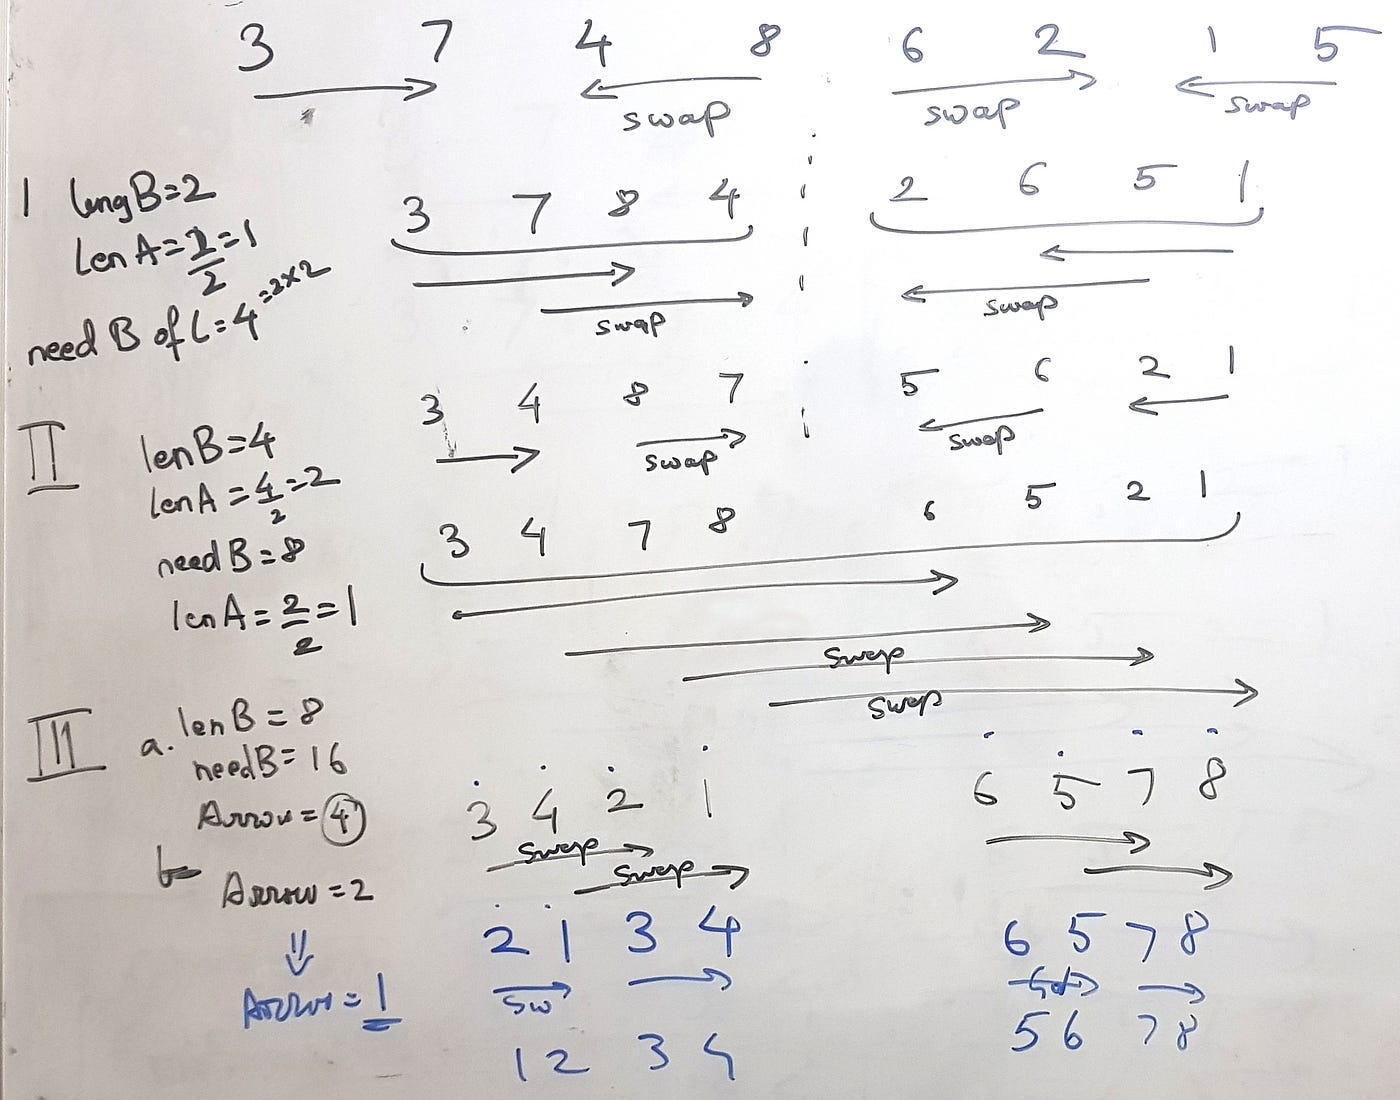 3 7 4 8 6 2 1 5
swap swap swap
1 lengB=2
3 7 8 4 2 6 5 1
lenA=2/2=1
need B of L=4=2x2
swap swap
3 4 8 7 5 6 2 1
swap swap
II lenB=4
lenA=4/2=2
3 4 7 8 6 5 2 1
needB=8
lenA=2/2=1
swap
swap
III a. lenB=8
needB=16
3 4 2 1 6 5 7 8
Arrow=4
swap swap
b Arrow=2
2 1 3 4 6 5 7 8
sw
Arrow=1
1 2 3 4 5 6 7 8